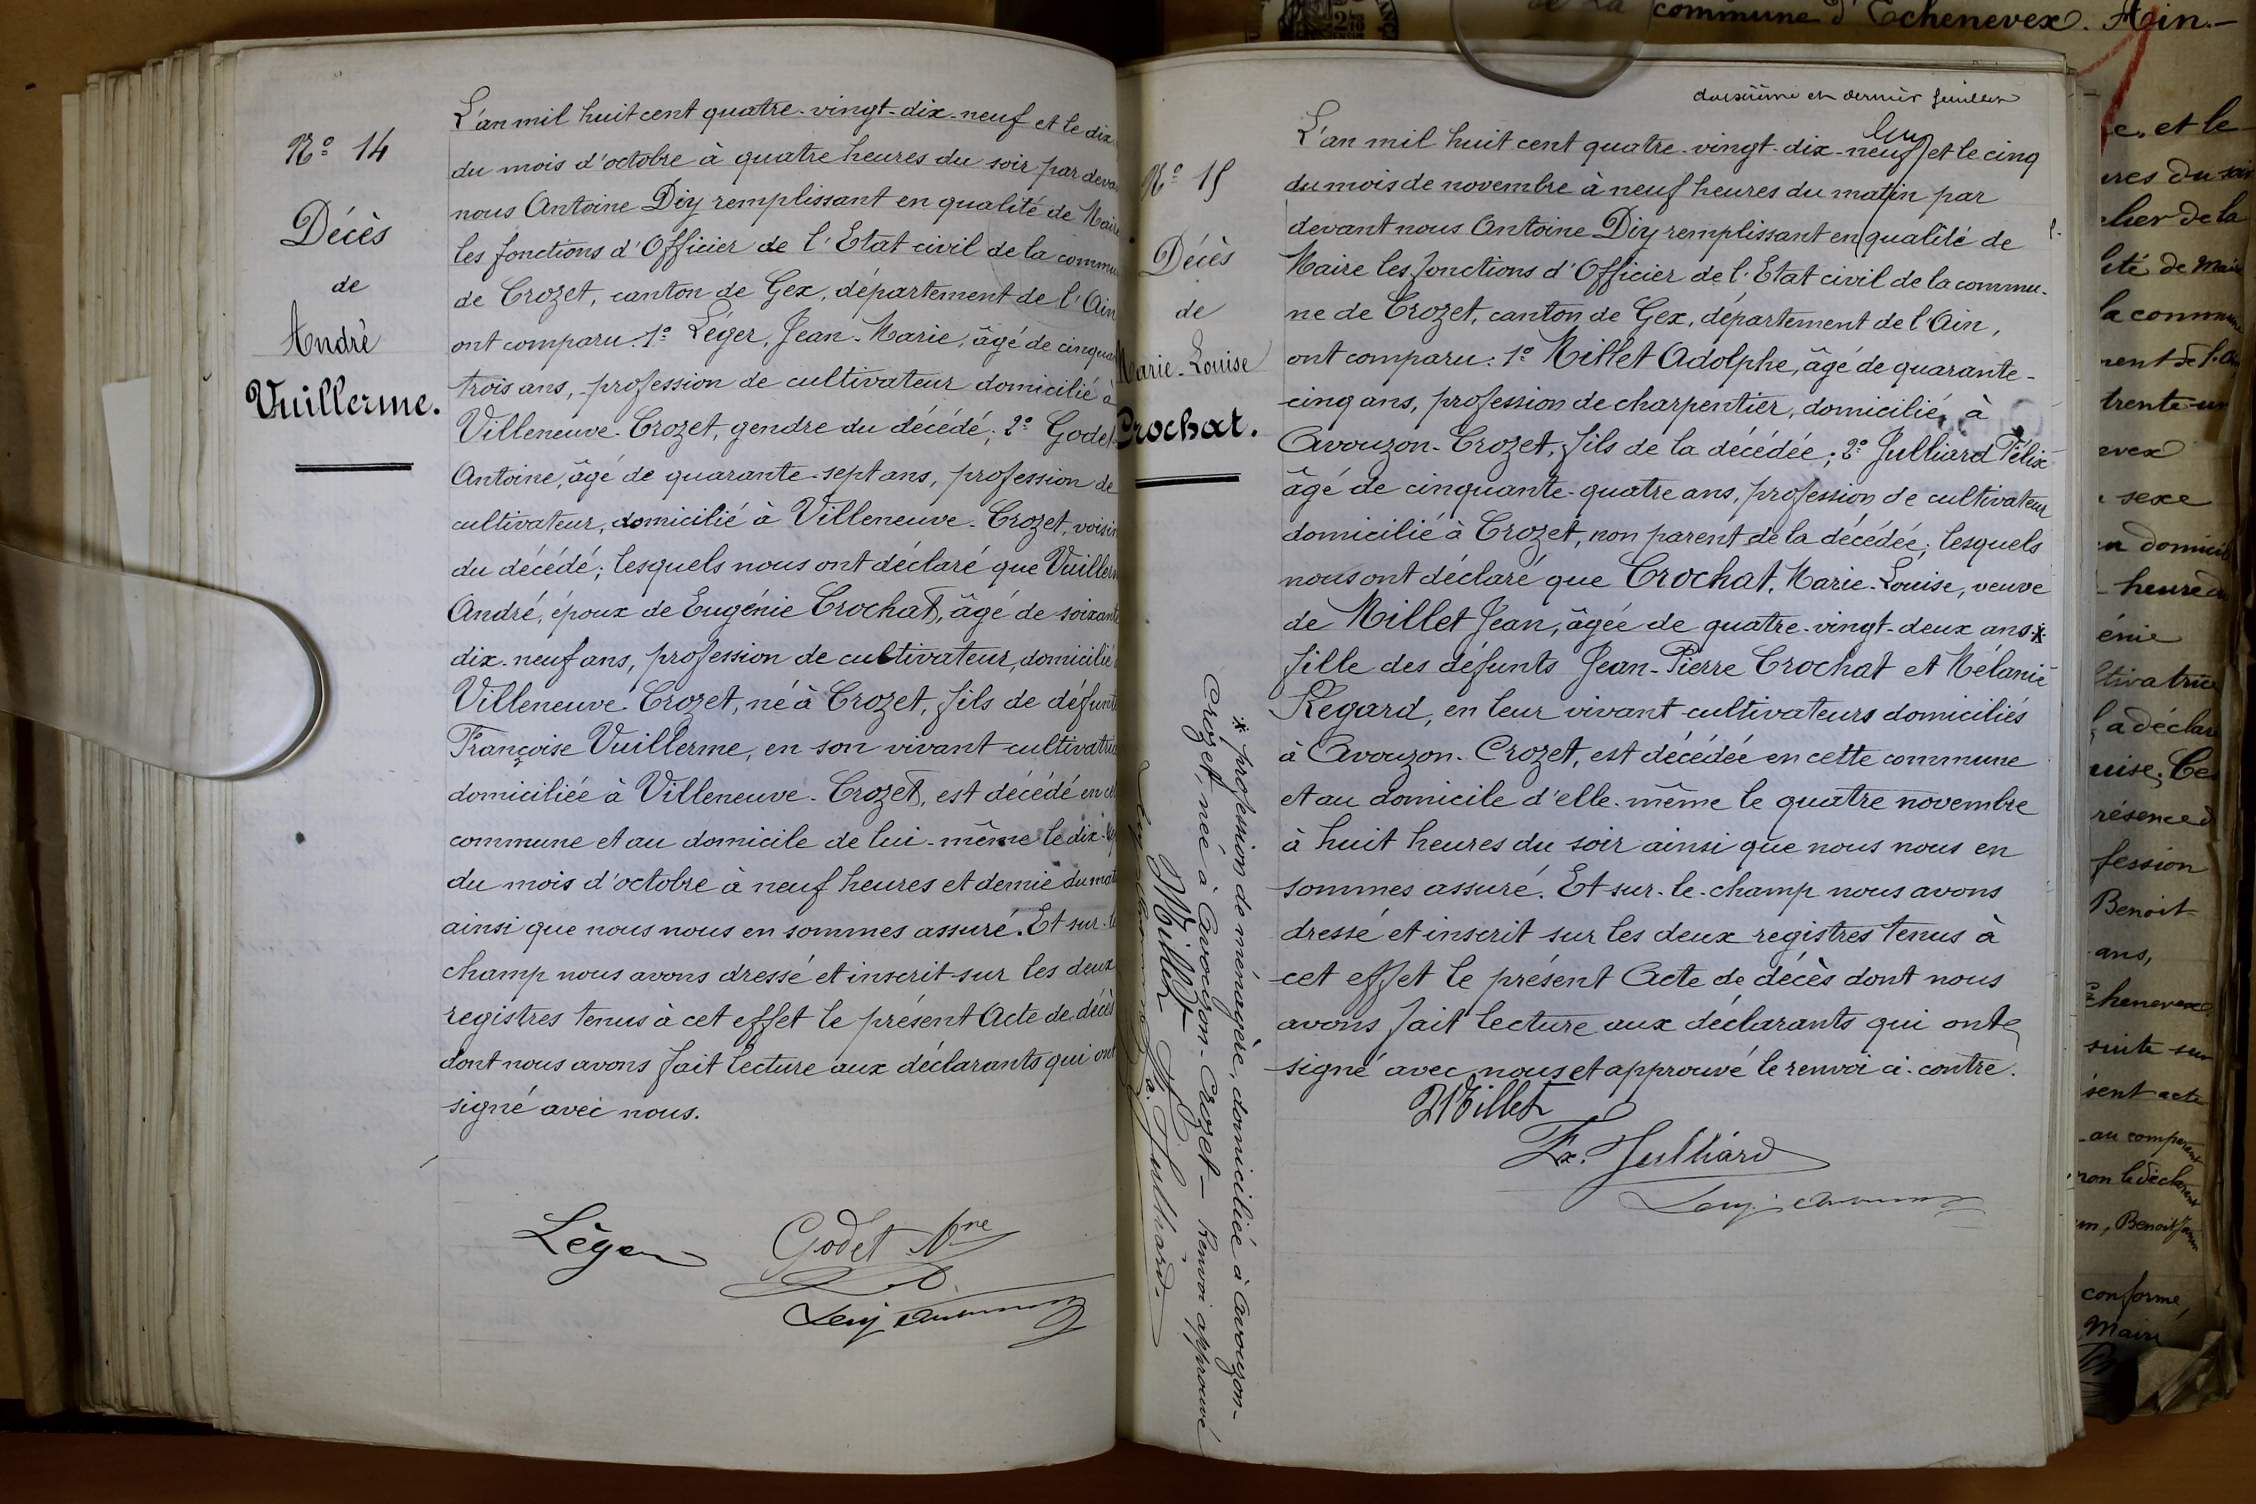 commune d'Echenevex. Ain.-
Nº 14
Décès
de
André
Vuillerme.
L'an mil huit cent quatre-vingt-dix-neuf et le dix
du mois d'octobre à quatre heures du soir, par deva
nous Antoine Diy remplissant en qualité de Maire
les fonctions d'Officier de l'Etat civil de la commu
de Crozet, canton de Gex, département de l'Ain
ont comparu. 1º Léger, Jean-Marie, âgé de cinquan
trois ans, profession de cultivateur domicilié à
Villeneuve-Crozet, gendre du décédé; 2º Godet
Antoine, âgé de quarante-sept ans, profession de
cultivateur, domicilié à Villeneuve-Crozet, voisin
du décédé; lesquels nous ont déclaré que Vuillerm
André, époux de Eugénie Crochat, âgé de soixante
dix-neuf ans, profession de cultivateur, domicilié
Villeneuve-Crozet, né à Crozet, fils de défunte
Françoise Vuillerme, en son vivant cultivatrice
domiciliée à Villeneuve-Crozet, est décédé en ce
commune et au domicile de lui-même le dix-
du mois d'octobre à neuf heures et demie du mat
ainsi que nous nous en sommes assuré. Et sur-le
champ nous avons dressé et inscrit sur les deux
registres tenus à cet effet le présent Acte de décès
dont nous avons fait lecture aux déclarants qui ont
signé avec nous.
Léger
Godet Ane
Nº 15
Décès
de
Marie-Louise
Crochat.
dernier feuillet
L'an mil huit cent quatre-vingt-dix-neuf et le cinq
du mois de novembre à neuf heures du matin par
devant nous Antoine Diy remplissant en qualité de
Maire les fonctions d'Officier de l'Etat civil de la commu-
ne de Crozet, canton de Gex, département de l'Ain,
ont comparu: 1º Millet Adolphe, âgé de quarante-
cinq ans, profession de charpentier, domicilié à
Avouzon-Crozet, fils de la décédée; 2º Julliard Félix
âgé de cinquante-quatre ans, profession de cultivateur
domicilié à Crozet, non parent de la décédée; lesquels
nous ont déclaré que Crochat, Marie-Louise, veuve
de Millet Jean, âgée de quatre-vingt-deux ans *
fille des défunts Jean-Pierre Crochat et Mélanie
Regard, en leur vivant cultivateurs domiciliés
à Avouzon-Crozet, est décédée en cette commune
et au domicile d'elle-même le quatre novembre
à huit heures du soir ainsi que nous nous en
sommes assuré. Et sur-le-champ nous avons
dressé et inscrit sur les deux registres tenus à
cet effet le présent Acte de décès dont nous
avons fait lecture aux déclarants qui ont
signé avec nous et approuvé le renvoi ci-contre.
Millet
Fx. Julliard
* profession de ménagère, domiciliée à Avouzon-
Crozet, née à Avouzon-Crozet - Renvoi approuvé
Millet
Fx. Julliard
e, et le
ures du soir
lier de la
lité de Maire
la commune
ment de l'Ain
trente-un
evex
sexe
domicile
heure du
énie
ltivatrice
a déclaré
uise. Ces
résence d
fession
Benoit
ans,
Echenevex
suite sur
sent acte
au comparant
non le déclarant
Benoit
conforme,
Maire